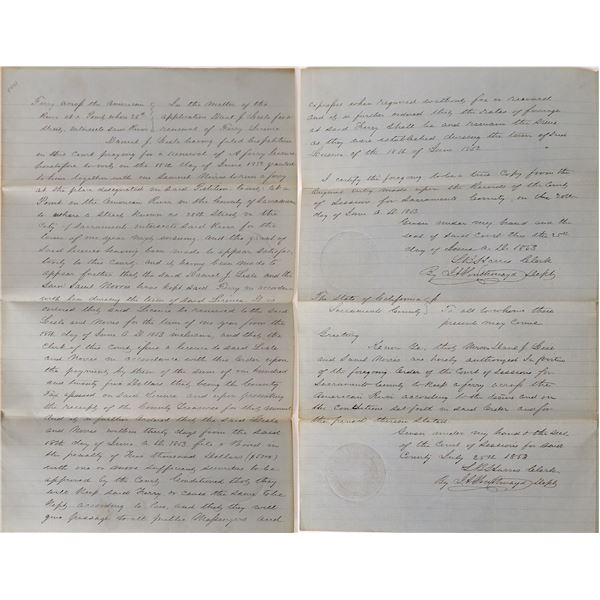 Ferry across the American } In the Matter of the
River at a Point where 28th } application Daniel J. Lisle for a
Street, intersects said River } renewal of Ferry License
Daniel J. Lisle having filed his petition
in this Court praying for a renewal of a ferry license
heretofore to wit on the 18th day of June 1852 granted
to him together with one Samuel Norris to run a ferry
at the place designated in said Petition to wit; at a
Point on the American River in the County of Sacramento
to where a Street known as 28th Street in the
City of Sacramento intersects said River for the
term of one year may ensuing, and the grant of
said License having been made to appear satisfac-
torily to this Court and it having been made to
appear further that the said Daniel J. Lisle and the
said Saml Norris have kept said Ferry in accordance
with law during the term of said License. It is
ordered that said License be renewed to the said
Lisle and Norris for the term of one year from the
18th day of June A.D. 1853 inclusive, and that the
Clerk of this Court issue a license to said Lisle
and Norris in accordance with this Order upon
the payment by them of the sum of one hundred
and twenty five Dollars that being the County
Tax assessed on said License and upon presenting
the receipt of the County Treasurer for that amount
And it is further ordered that the said Lisle
and Norris within thirty days from the said
18th day of June A.D. 1853 file a Bond in
the penalty of Five thousand Dollars ($5000)
with one or more sufficient securities to be
approved by the Court Conditioned that they
will keep said Ferry or cause the same to be
kept according to law, and that they will
give passage to all public Messengers and
expresses when required without fee or reward
and it is further ordered that the rates of ferriage
at said Ferry shall be and remain the same
as they were established during the term of said
License of the 18th of June 1852
I certify the foregoing to be a true Copy from the
Original entry made upon the Records of the Court
of Session for Sacramento County, on the 20th
day of June A.D. 1853
Given under my hand and the
seal of said Court this the 25th
day of June A.D. 1853
L B Harris Clerk
By Depty
The State of California }
Sacramento County } To all to whom these
present may Come
Greeting
Know Ye, that Daniel J. Lisle
and Saml Norris are hereby authorized In portion
of the foregoing Order of the Court of Sessions for
Sacramento County to keep a ferry across the
American River according to the terms and on
the Conditions set forth in said Order and for
the period therein stated
Given under my hand & the Seal
of the Court of Sessions for said
County July 25th 1853
L B Harris Clerk
By Depty